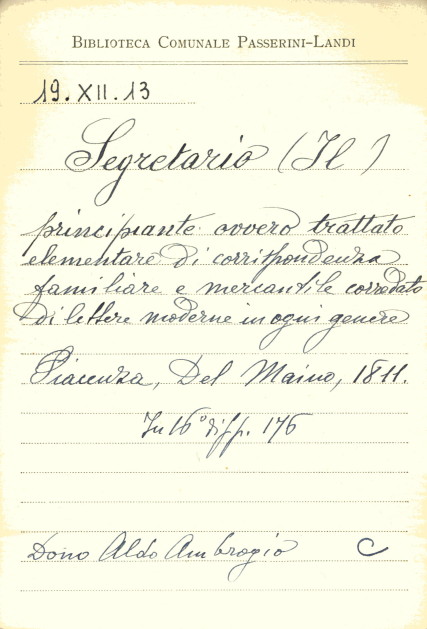 BIBLIOTECA COMUNALE PASSERINI-LANDI
19.XII.13
Segretario (Il)
principiante ovvero trattato
elementare di corrispondenza
familiare e mercantile corredato
di lettere moderne in ogni genere
Piacenza, Del Maino, 1811.
In 16° di pp. 176
Dono Aldo Ambrogio C